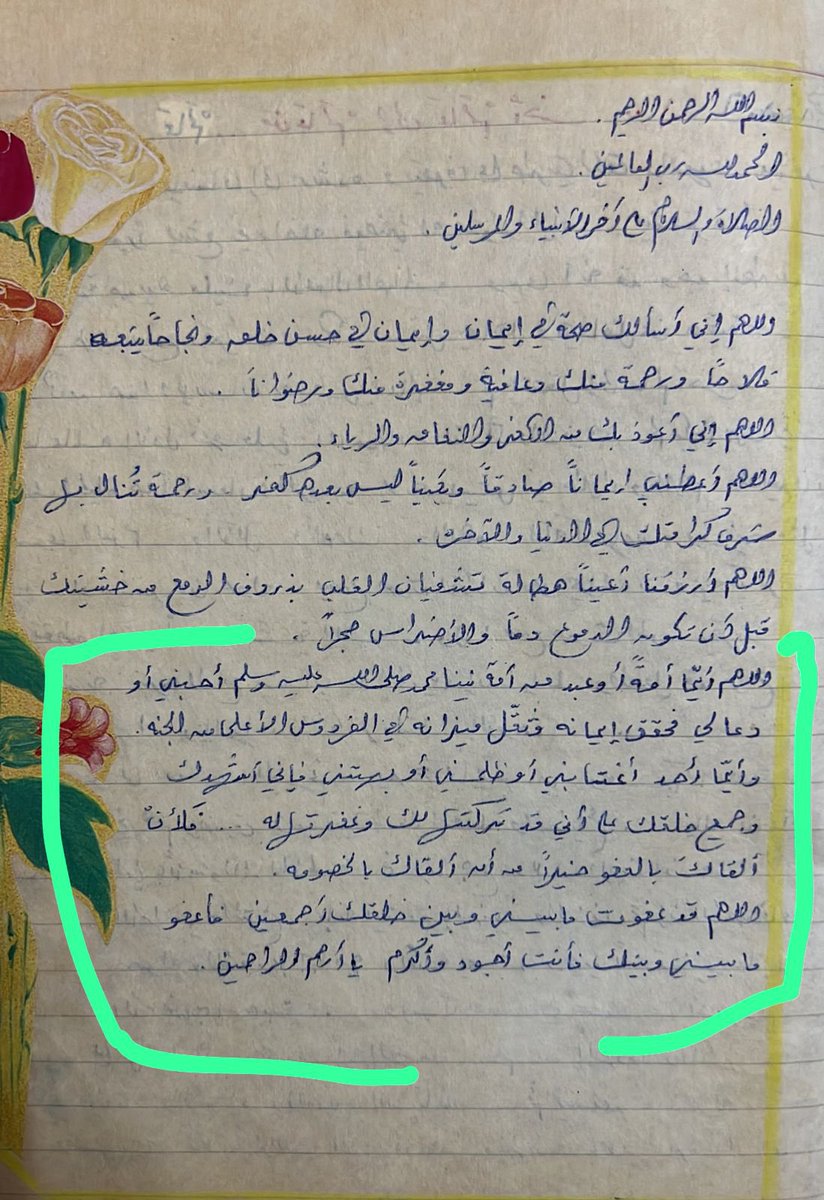 بسم الله الرحمن الرحيم .
الحمد لله رب العالمين .
الصلاة والسلام على أخر الأنبياء والمرسلين .
اللهم إني أسألك صحة في إيمان وإيمان في حسن خلق ونجاحاً يتبعه
فلاحاً ورحمة منك وعافية ومغفرة منك ورضواناً .
اللهم إني أعوذ بك من الكفر والنفاق والرياء .
اللهم أعطني إيماناً صادقاً ويقيناً ليس بعده كفر ورحمة تُنال بها
شرف كرامتك في الدنيا والآخرة .
اللهم أرزقنا أعيناً هطالة تشفيان القلب بذروف الدمع من خشيتك
قبل أن تكون الدموع دماً والأضراس جمراً .
اللهم أيّما أمةً أو عبد من أمة نبينا محمد صلى الله عليه وسلم أحبني أو
دعا لي فحقق إيمانه وثقّل ميزانه في الفردوس الأعلى من الجنه .
وأيّما أحد أغتابني أو ظلمني أو بهتني فإني أستشهدك
وجميع خلقك على أني قد تركتها لك وغفرتها له ... فلأنْ
ألقاكَ بالعفو خيراً من أن ألقاك بالخصومه .
اللهم قد عفوت ما بيني وبين خلقك أجمعين فأعفو
ما بيني وبينك فأنت أجود وأكرم يا أرحم الراحمين .